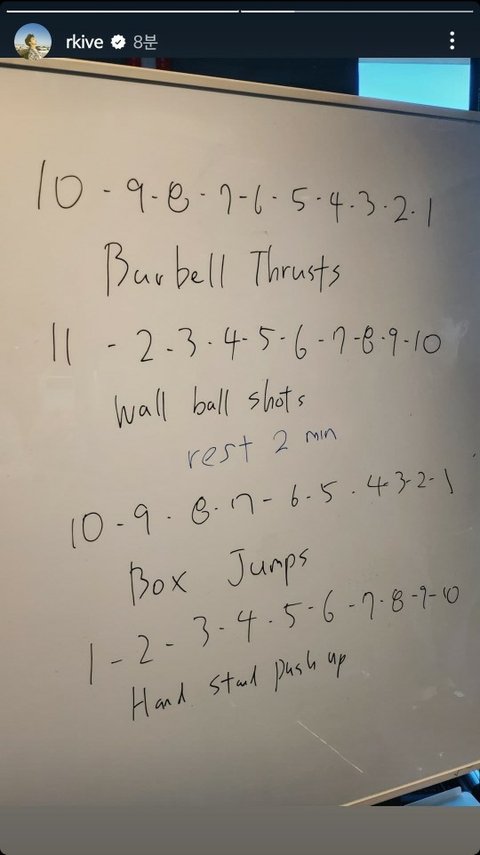 rkive 8분
10 - 9 - 8 - 7 - 6 - 5 - 4 - 3 - 2 - 1
Barbell Thrusts
11 - 2 - 3 - 4 - 5 - 6 - 7 - 8 - 9 - 10
Wall ball shots
rest 2 min
10 - 9 - 8 - 7 - 6 - 5 - 4 - 3 - 2 - 1
Box Jumps
1 - 2 - 3 - 4 - 5 - 6 - 7 - 8 - 9 - 10
Hand stand push up